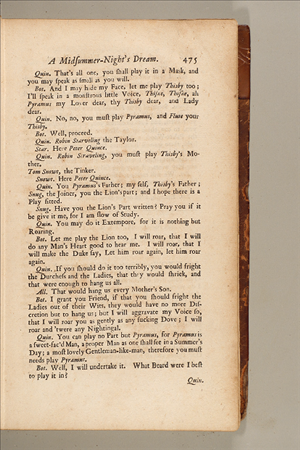 A Midsummer-Night's Dream. 475
Quin. That's all one, you shall play it in a Mask, and
you may speak as small as you will.
Bot. And I may hide my Face, let me play Thisby too;
I'll speak in a monstrous little Voice, Thisne, Thisne, ah
Pyramus my Lover dear, thy Thisby dear, and Lady
dear.
Quin. No, no, you must play Pyramus, and Flute your
Thisby.
Bot. Well, proceed.
Quin. Robin Starveling the Taylor.
Star. Here Peter Quince.
Quin. Robin Starveling, you must play Thisby's Mo-
ther.
Tom Snowt, the Tinker.
Snowt. Here Peter Quince.
Quin. You Pyramus's Father; my self, Thisby's Father;
Snug, the Joiner, you the Lion's part; and I hope there is a
Play fitted.
Snug. Have you the Lion's Part written? Pray you if it
be give it me, for I am slow of Study.
Quin. You may do it Extempore, for it is nothing but
Roaring.
Bot. Let me play the Lion too, I will roar, that I will
do any Man's Heart good to hear me. I will roar, that I
will make the Duke say, Let him roar again, let him roar
again.
Quin. If you should do it too terribly, you would fright
the Dutchess and the Ladies, that they would shriek, and
that were enough to hang us all.
All. That would hang us every Mother's Son.
Bot. I grant you Friend, if that you should fright the
Ladies out of their Wits, they would have no more Dis-
cretion but to hang us; but I will aggravate my Voice so,
that I will roar you as gently as any sucking Dove; I will
roar and 'twere any Nightingal.
Quin. You can play no Part but Pyramus, for Pyramus is
a sweet-fac'd Man, a proper Man as one shall see in a Summer's
Day; a most lovely Gentleman-like-man, therefore you must
needs play Pyramus.
Bot. Well, I will undertake it. What Beard were I best
to play it in?
Quin.